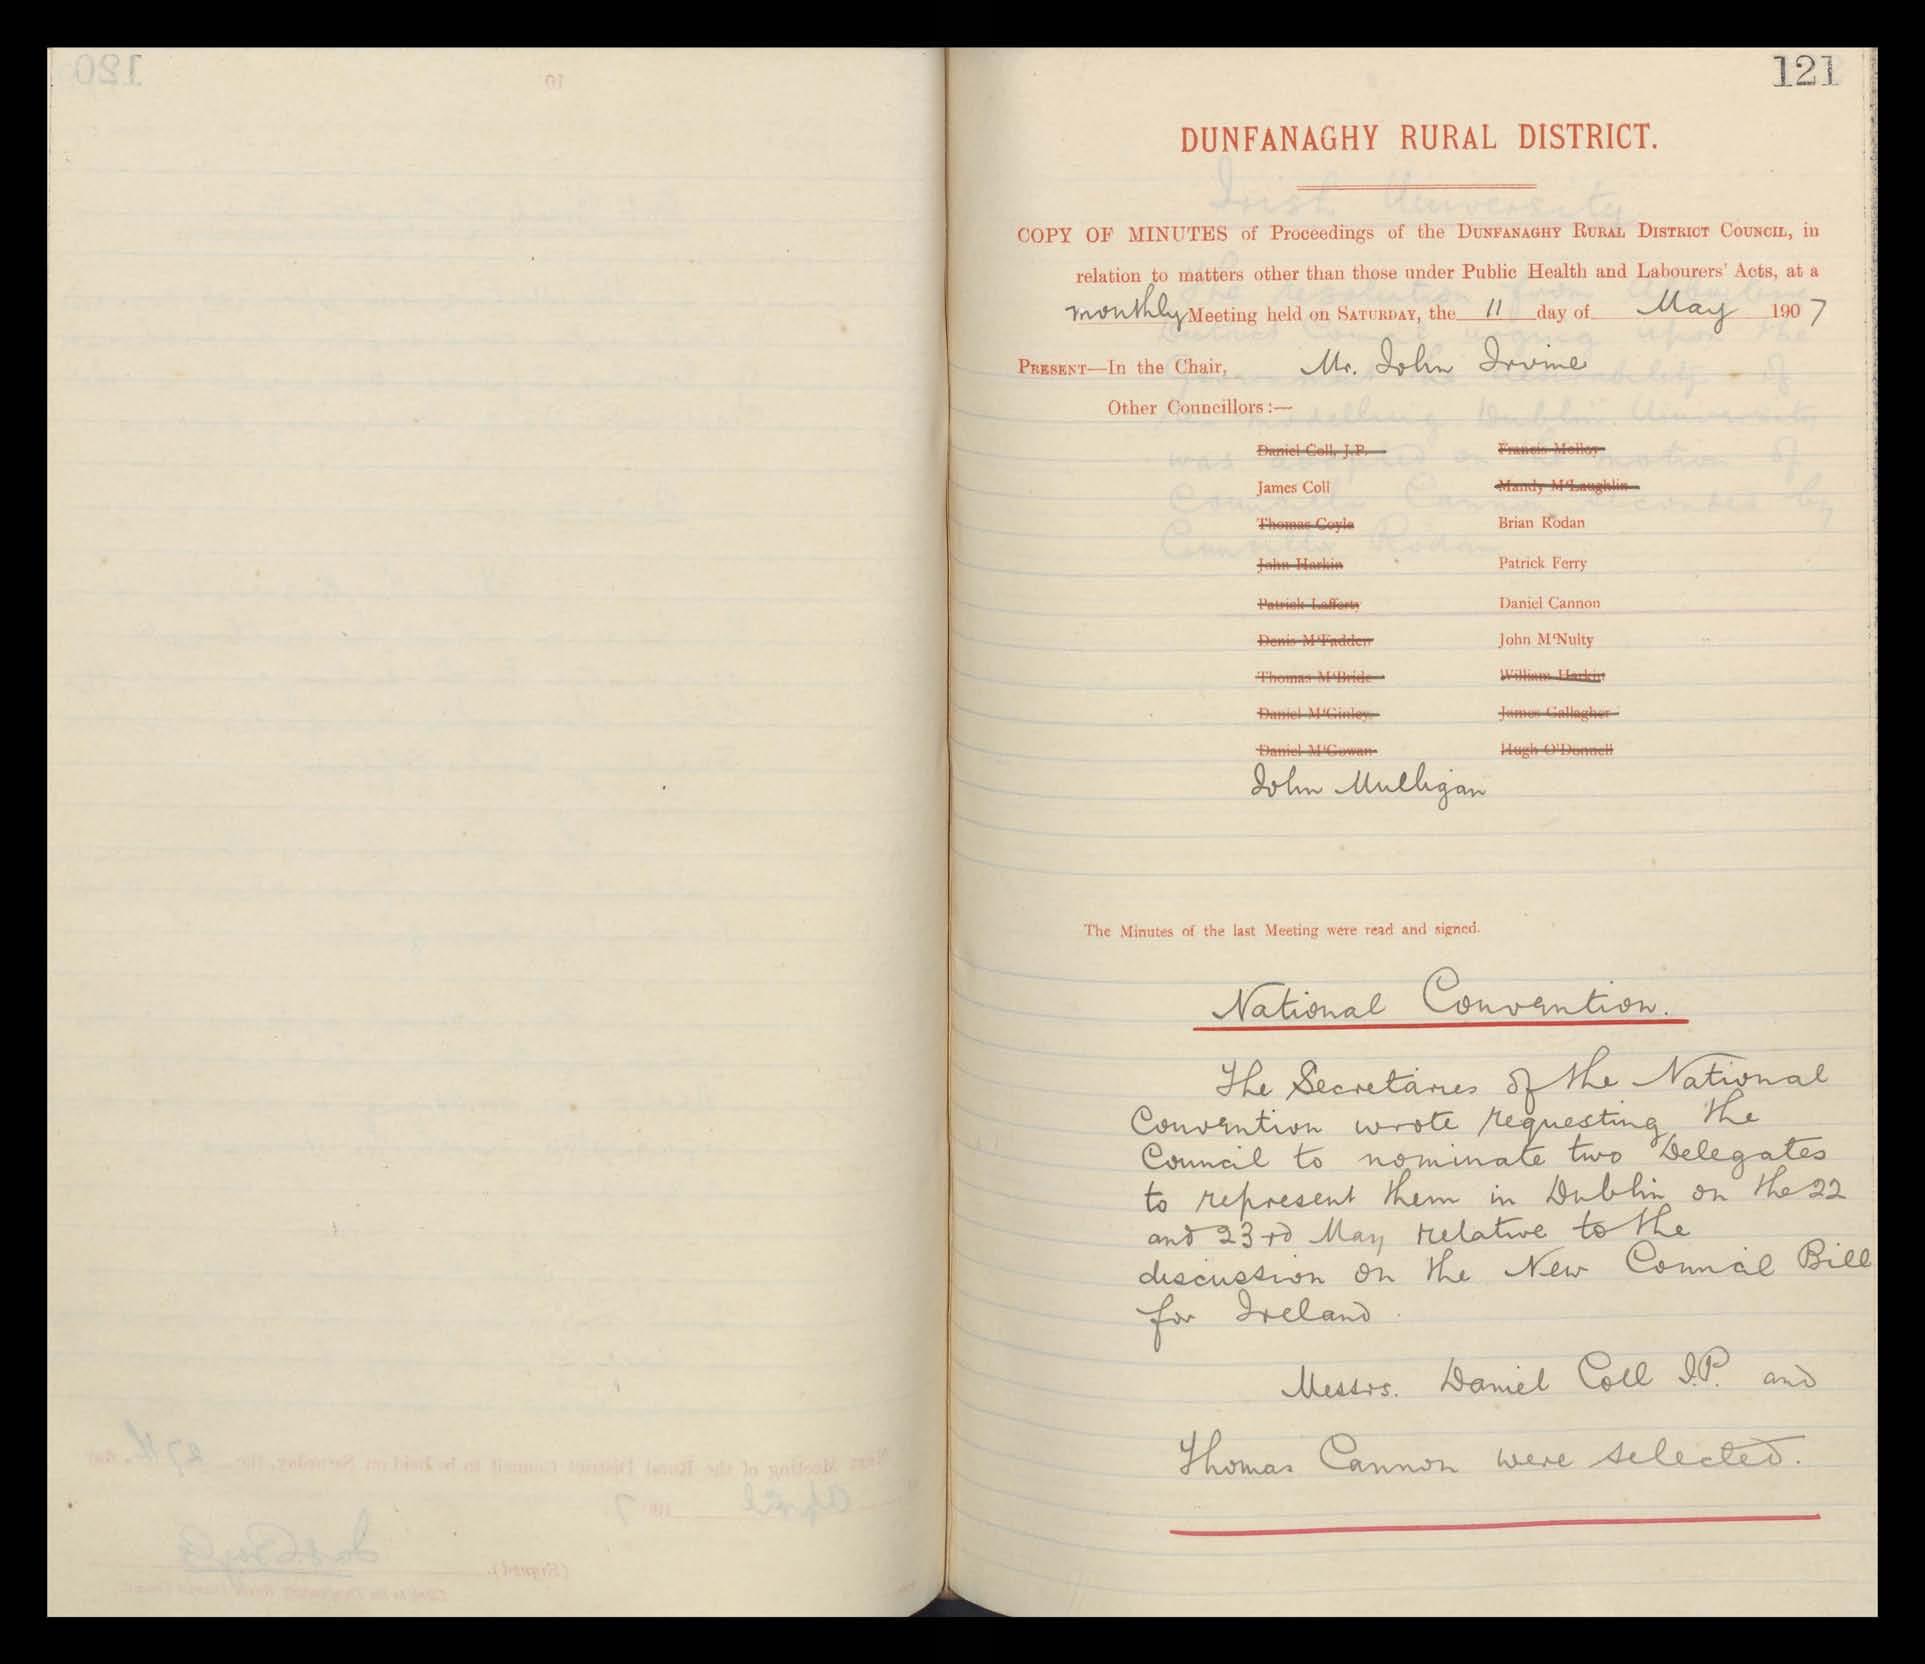 121
DUNFANAGHY RURAL DISTRICT.
COPY OF MINUTES of Proceedings of the DUNFANAGHY RURAL DISTRICT COUNCIL, in
relation to matters other than those under Public Health and Labourers' Acts, at a
monthly Meeting held on SATURDAY, the 11 day of May 1907
PRESENT—In the Chair, Mr. John Irvine
Other Councillors:—
Daniel Coll, J.P. Francis Molloy
James Coll Mandy M'Laughlin
Thomas Coyle Brian Rodan
John Harkin Patrick Ferry
Patrick Lafferty Daniel Cannon
Denis M'Fadden John M'Nulty
Thomas M'Bride William Harkin
Daniel M'Ginley James Gallagher
Daniel M'Gowan Hugh O'Donnell
John Mulligan
The Minutes of the last Meeting were read and signed.
National Convention.
The Secretaries of the National
Convention wrote requesting the
Council to nominate two Delegates
to represent them in Dublin on the 22
and 23rd May relative to the
discussion on the New Council Bill
for Ireland.
Messrs. Daniel Coll J.P. and
Thomas Cannon were selected.